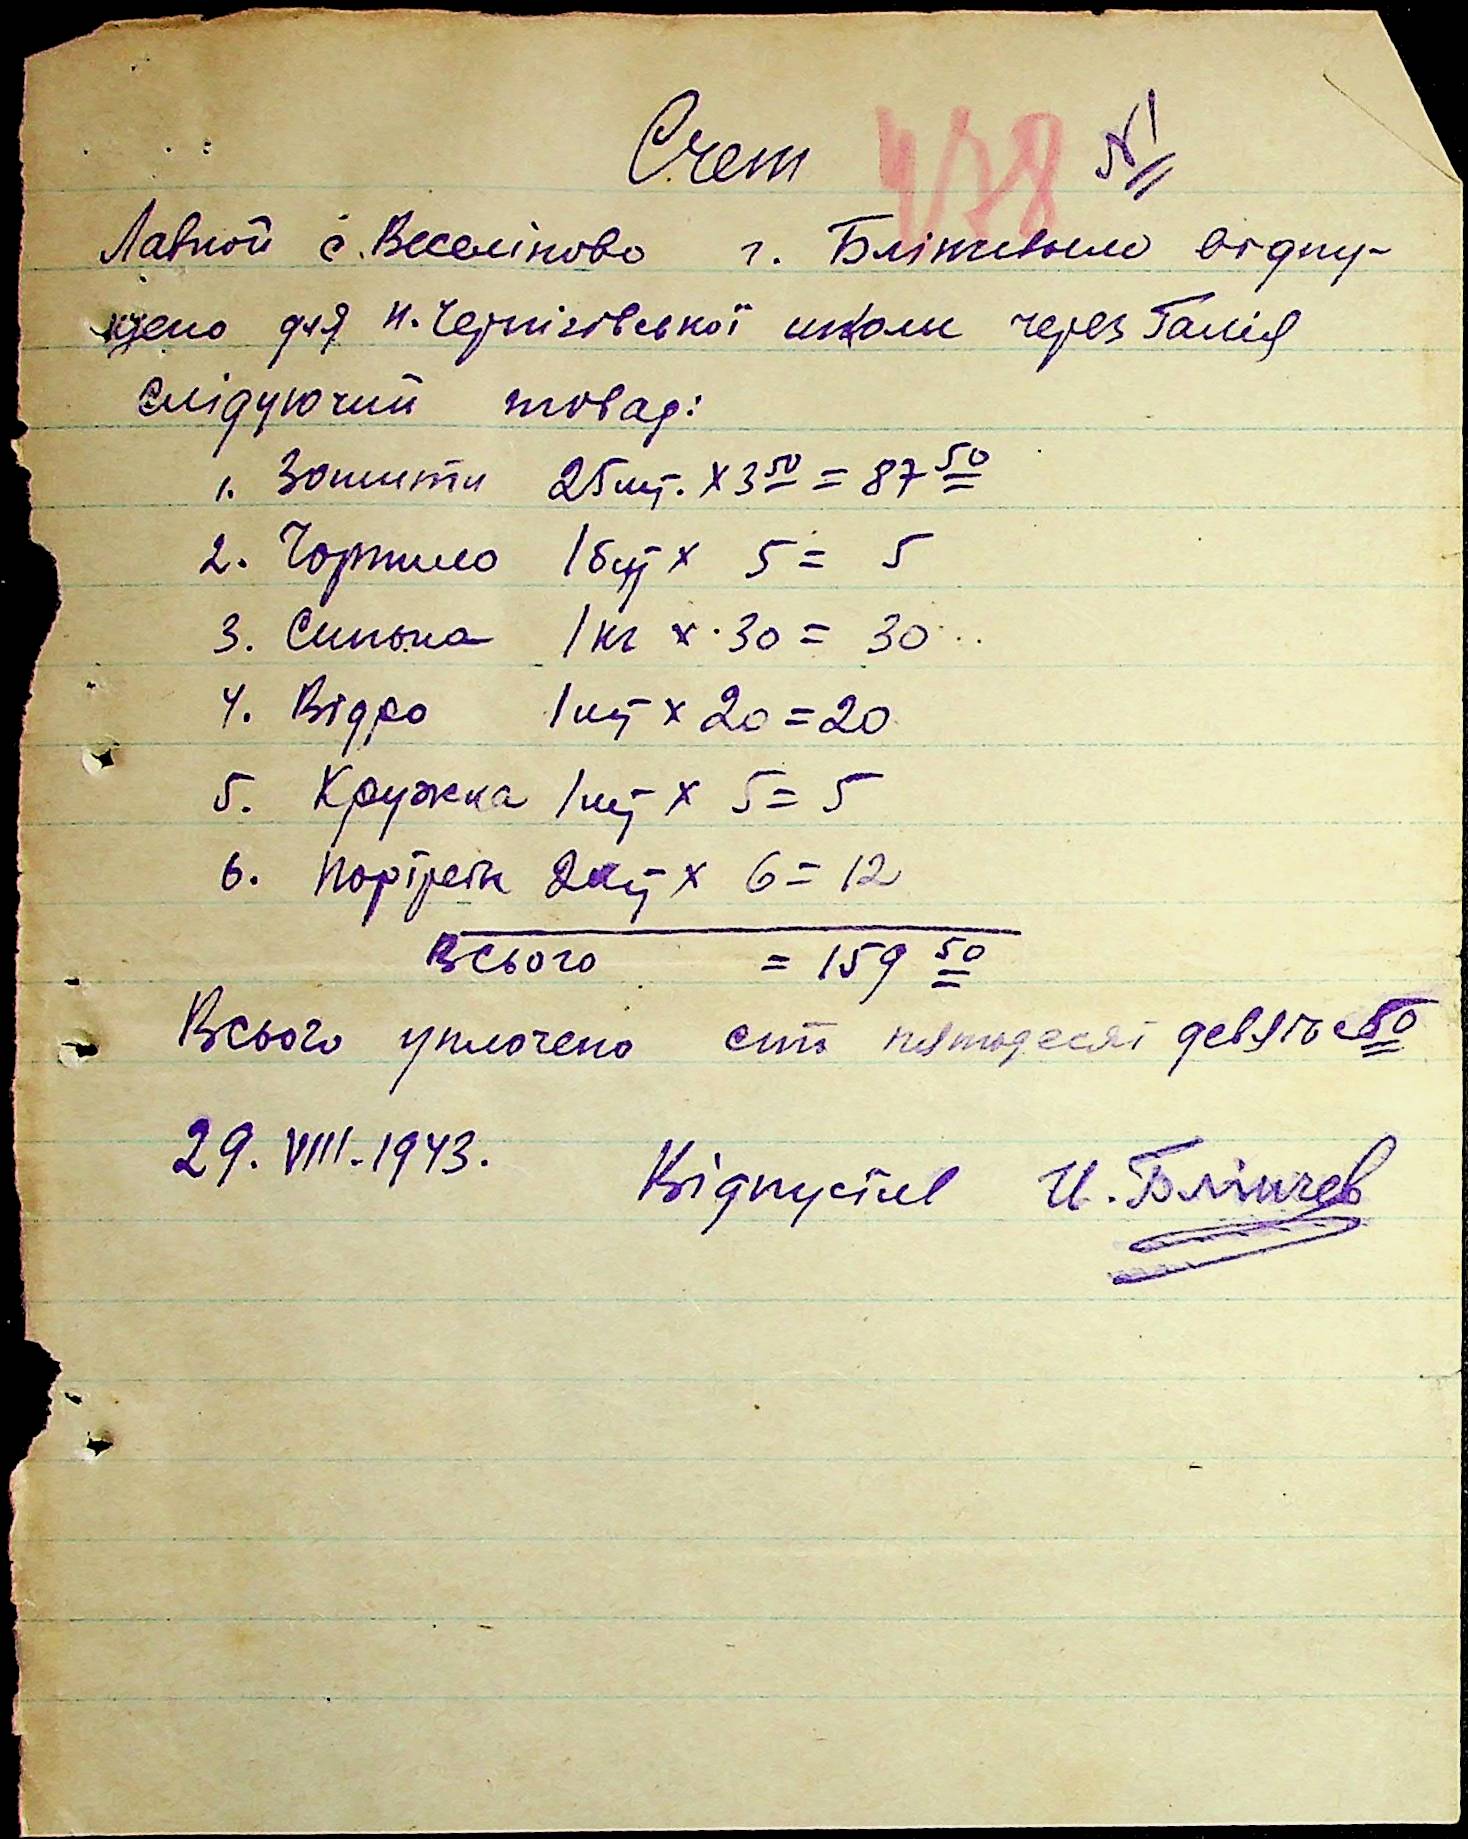 Счет 478 №1
Лавкой с. Веселіново г. Блінчевым відпу-
щено для н. Чернігівської школи через Галія
слідуючий товар:
1. Зошити 25 шт. х 3 50 = 87 50
2. Чорнило 1 бут х 5 = 5
3. Синька 1 кг х 30 = 30
4. Відро 1 шт х 20 = 20
5. Кружка 1 шт х 5 = 5
6. Портрети 2 шт х 6 = 12
Всього = 159 50
Всього уплочено сто пятьдесят девять 50
29. VIII. 1943. Відпустив И. Блінчев